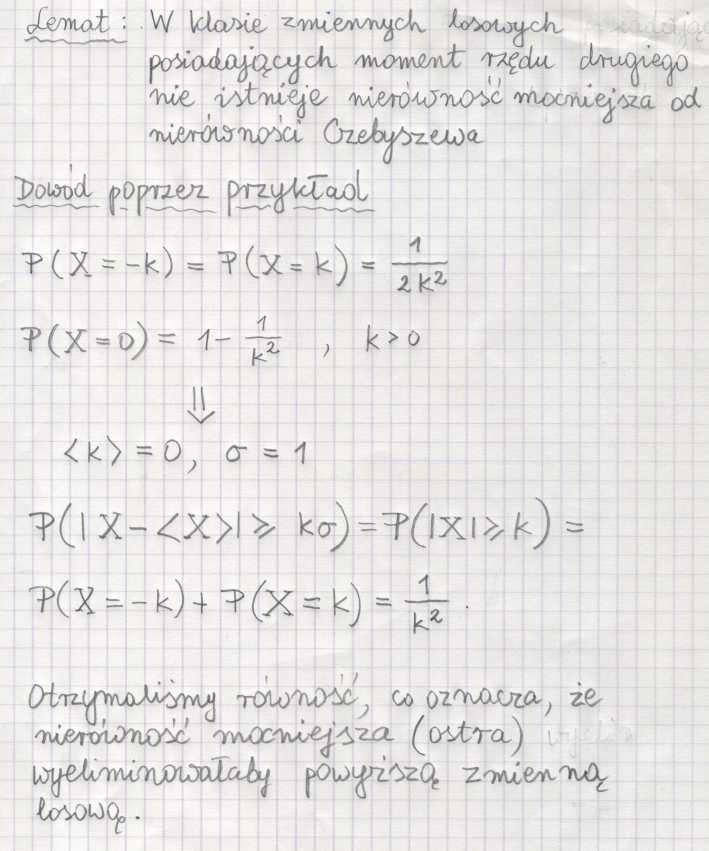 Lemat: W klasie zmiennych losowych
posiadających moment rzędu drugiego
nie istnieje nierówność mocniejsza od
nierówności Czebyszewa
Dowód poprzez przykład
P(X=-k) = P(X=k) = 1/2k²
P(X=0) = 1 - 1/k² , k>0
⇓
<k> = 0, σ = 1
P(|X-<X>| ≥ kσ) = P(|X| ≥ k) =
P(X=-k) + P(X=k) = 1/k².
Otrzymaliśmy równość, co oznacza, że
nierówność mocniejsza (ostra)
wyeliminowałaby powyższą zmienną
losową.